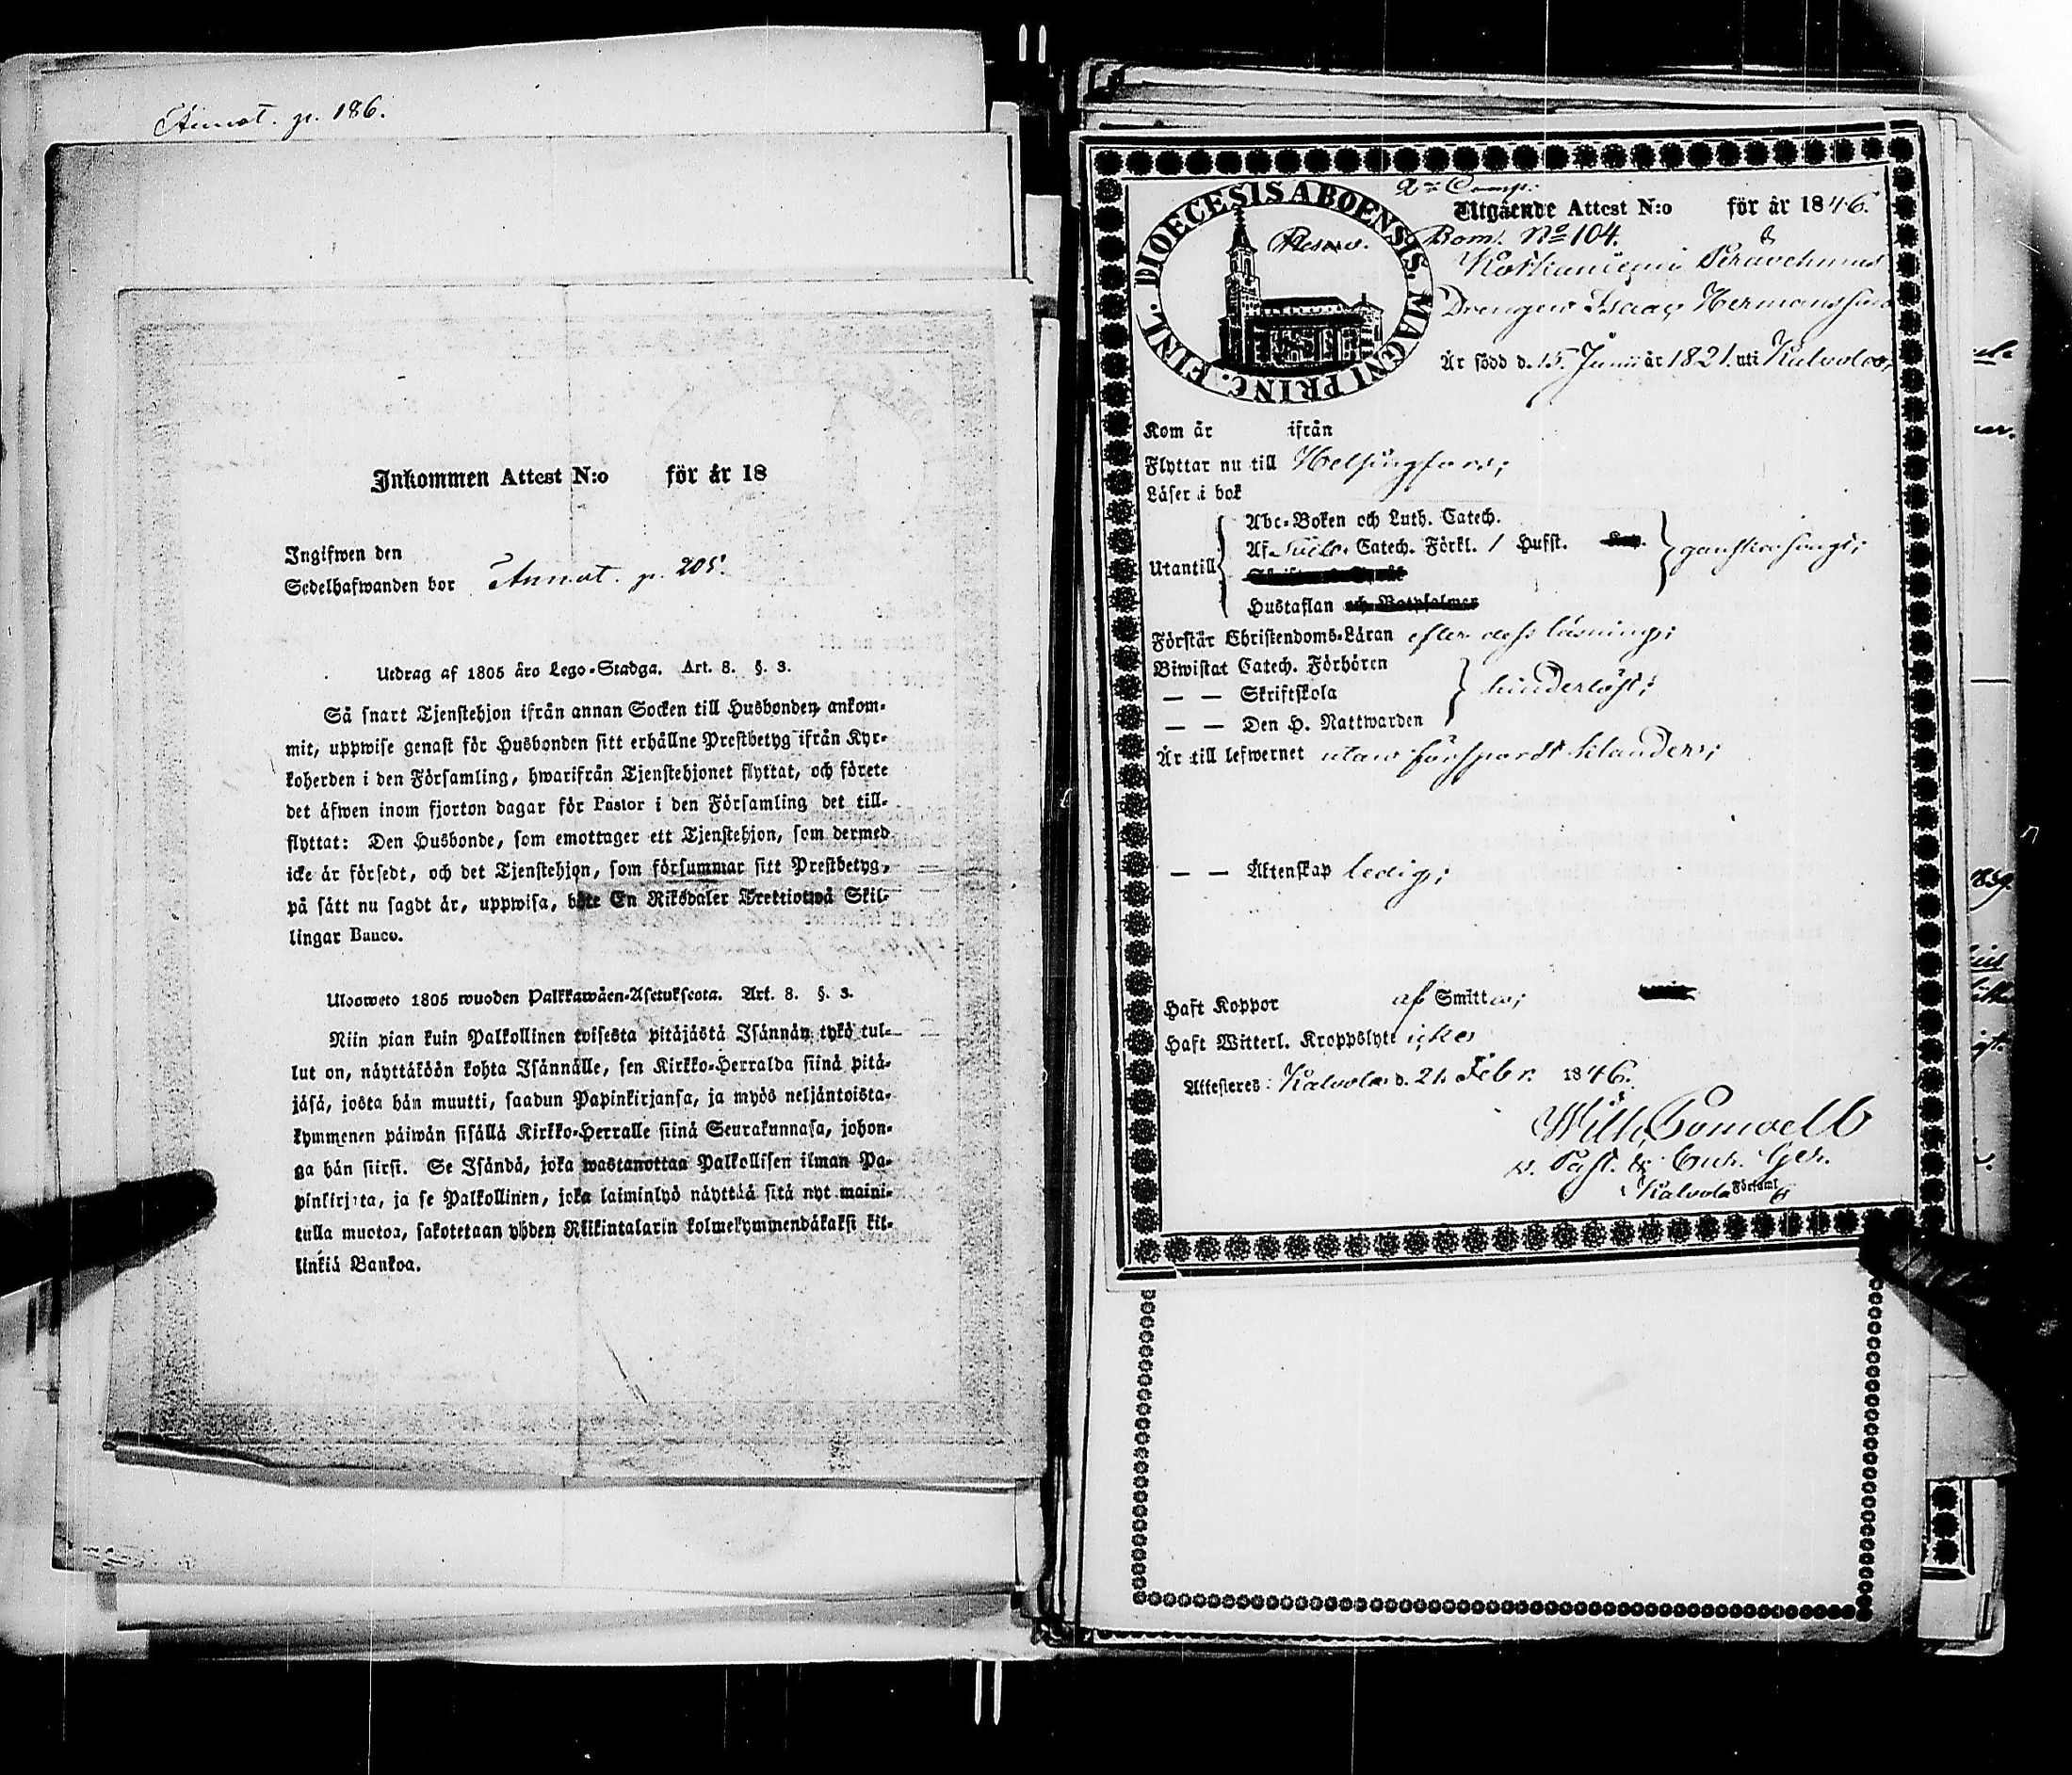 Annot. p. 186.
Inkommen Attest N:o för år 18
Ingifwen den
Sedelhafwanden bor Annot. p. 205.
Utdrag af 1805 åro Lego-Stadga. Art. 8. §. 3.
Så snart Tjenstehjon ifrån annan Socken till Husbonden ankom-
mit, uppwise genast för Husbonden sitt erhållne Prestbetyg ifrån Kyr-
koherden i den Församling, hwarifrån Tjenstehjonet flyttat, och förete
det äfwen inom fjorton dagar för Pastor i den Församling det till-
flyttat: Den Husbonde, som emottager ett Tjenstehjon, som dermed
icke är försedt, och det Tjenstehjon, som försummar sitt Prestbetyg,
på sätt nu sagdt är, uppwisa, böte En Riksdaler Trettiotwå Skil-
lingar Banco.
Ulooweto 1805 wuoden Palkkawäen-Asetuksesta. Art. 8. §. 3.
Niin pian kuin Palkollinen toisesta pitäjästä Isännän tykö tul-
lut on, näyttäköön kohta Isännälle, sen Kirkko-Herralda siinä pitä-
jäsä, josta hän muutti, saadun Papinkirjansa, ja myös neljäntoista-
kymmenen päiwän sisällä Kirkko-Herralle siinä Seurakunnasa, johon-
ga hän siirsi. Se Isändä, joka wastanottaa Palkollisen ilman Pa-
pinkirjata, ja se Palkollinen, joka laiminlyö näyttää sitä nyt maini-
tulla muotoa, sakotetaan yhden Riikintalarin kolmekymmendäkaksi kil-
linkiä Bankoa.
DIOECESIS ABOENSIS. MAGNI PRINC. FINL.
2:a Comp:
Utgående Attest N:o för år 1846.
Rom. No 104.
Drengen Isaac Hermansson
Är född d. 15 Junii år 1821. uti Kalvola,
Kom år ifrån
Flyttar nu till Helsingfors;
Läser i bok
Utantill
Abc-Boken och Luth. Catech.
Af Catech. Förkl. / Husst.
ganska svagt;
Hustaflan och Botpsalmer
Förstår Christendoms-Läran efter dess läsning;
Biwistat Catech. Förhören
— — Skriftskola
hinderlöst;
— — Den H. Nattwarden
Är till lefwernet utan försport klander;
— — Äktenskap ledig;
Haft Koppor af Smitta;
Haft Witterl. Kroppslyte icke
Attesteres: Kalvola d. 21 Febr. 1846.
Kalvola Församl